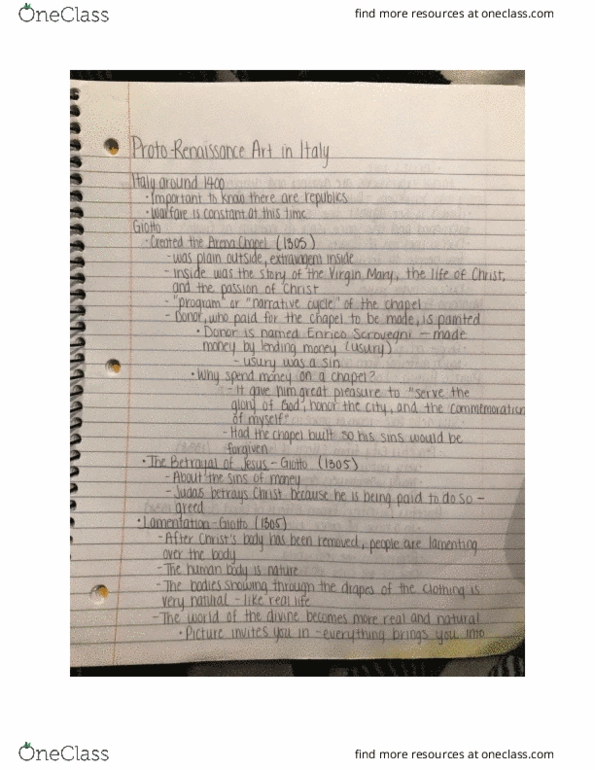 OneClass
find more resources at oneclass.com
Proto-Renaissance Art in Italy
Italy around 1400
· Important to know there are republics
· Warfare is constant at this time
Giotto
- Created the Arena Chapel (1305)
- was plain outside, extravagent inside
- Inside was the story of the Virgin Mary, the life of Christ,
and the passion of Christ
- "program" or "narrative cycle" of the chapel
- Donor, who paid for the chapel to be made, is painted
· Donor is named Enrico Scrovegni — made
money by lending money (usury)
- usury was a sin
· Why spend money on a chapel?
- It gave him great pleasure to "serve the
glory of God, honor the city, and the commemoration
of myself"
- Had the chapel built so his sins would be
forgiven
· The Betrayal of Jesus - Giotto (1305)
- About the sins of money
- Judas betrays Christ because he is being paid to do so –
greed
· Lamentation - Giotto (1305)
- After Christ's body has been removed, people are lamenting
over the body
- The human body is nature
- The bodies showing through the drapes of the clothing is
very natural - like real life
- The world of the divine becomes more real and natural
· Picture invites you in - everything brings you into
OneClass
find more resources at oneclass.com